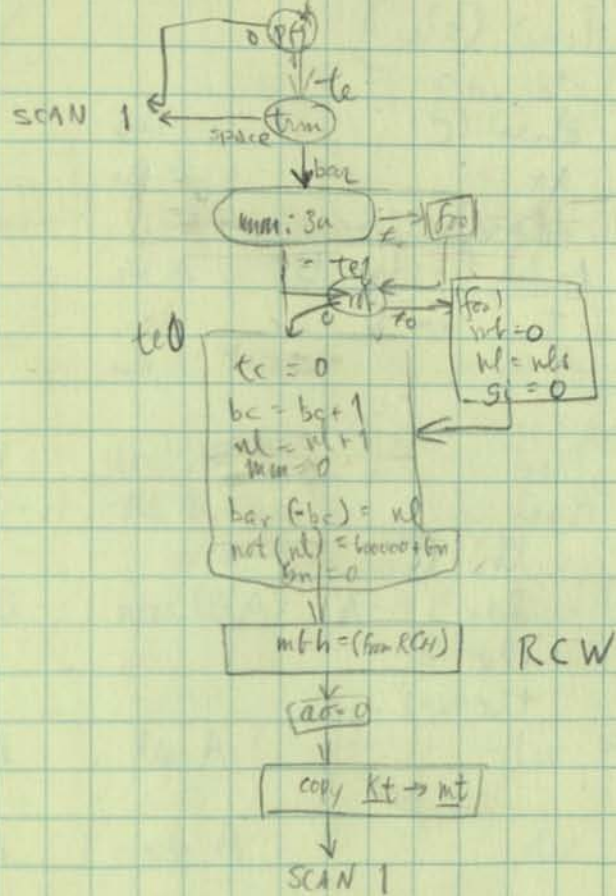 0
te
SCAN 1
space
trm
bar
mm: 3a
= te1
0
te0
mt = 0
nl = nls
= 0
tc = 0
bc = bc + 1
nl = nl + 1
mm = 0
bar (-bc) = nl
not (nl) = 600000 + bn
bn = 0
mbh = (from RCH)
RCW
ao = 0
copy Kt → mt
SCAN 1